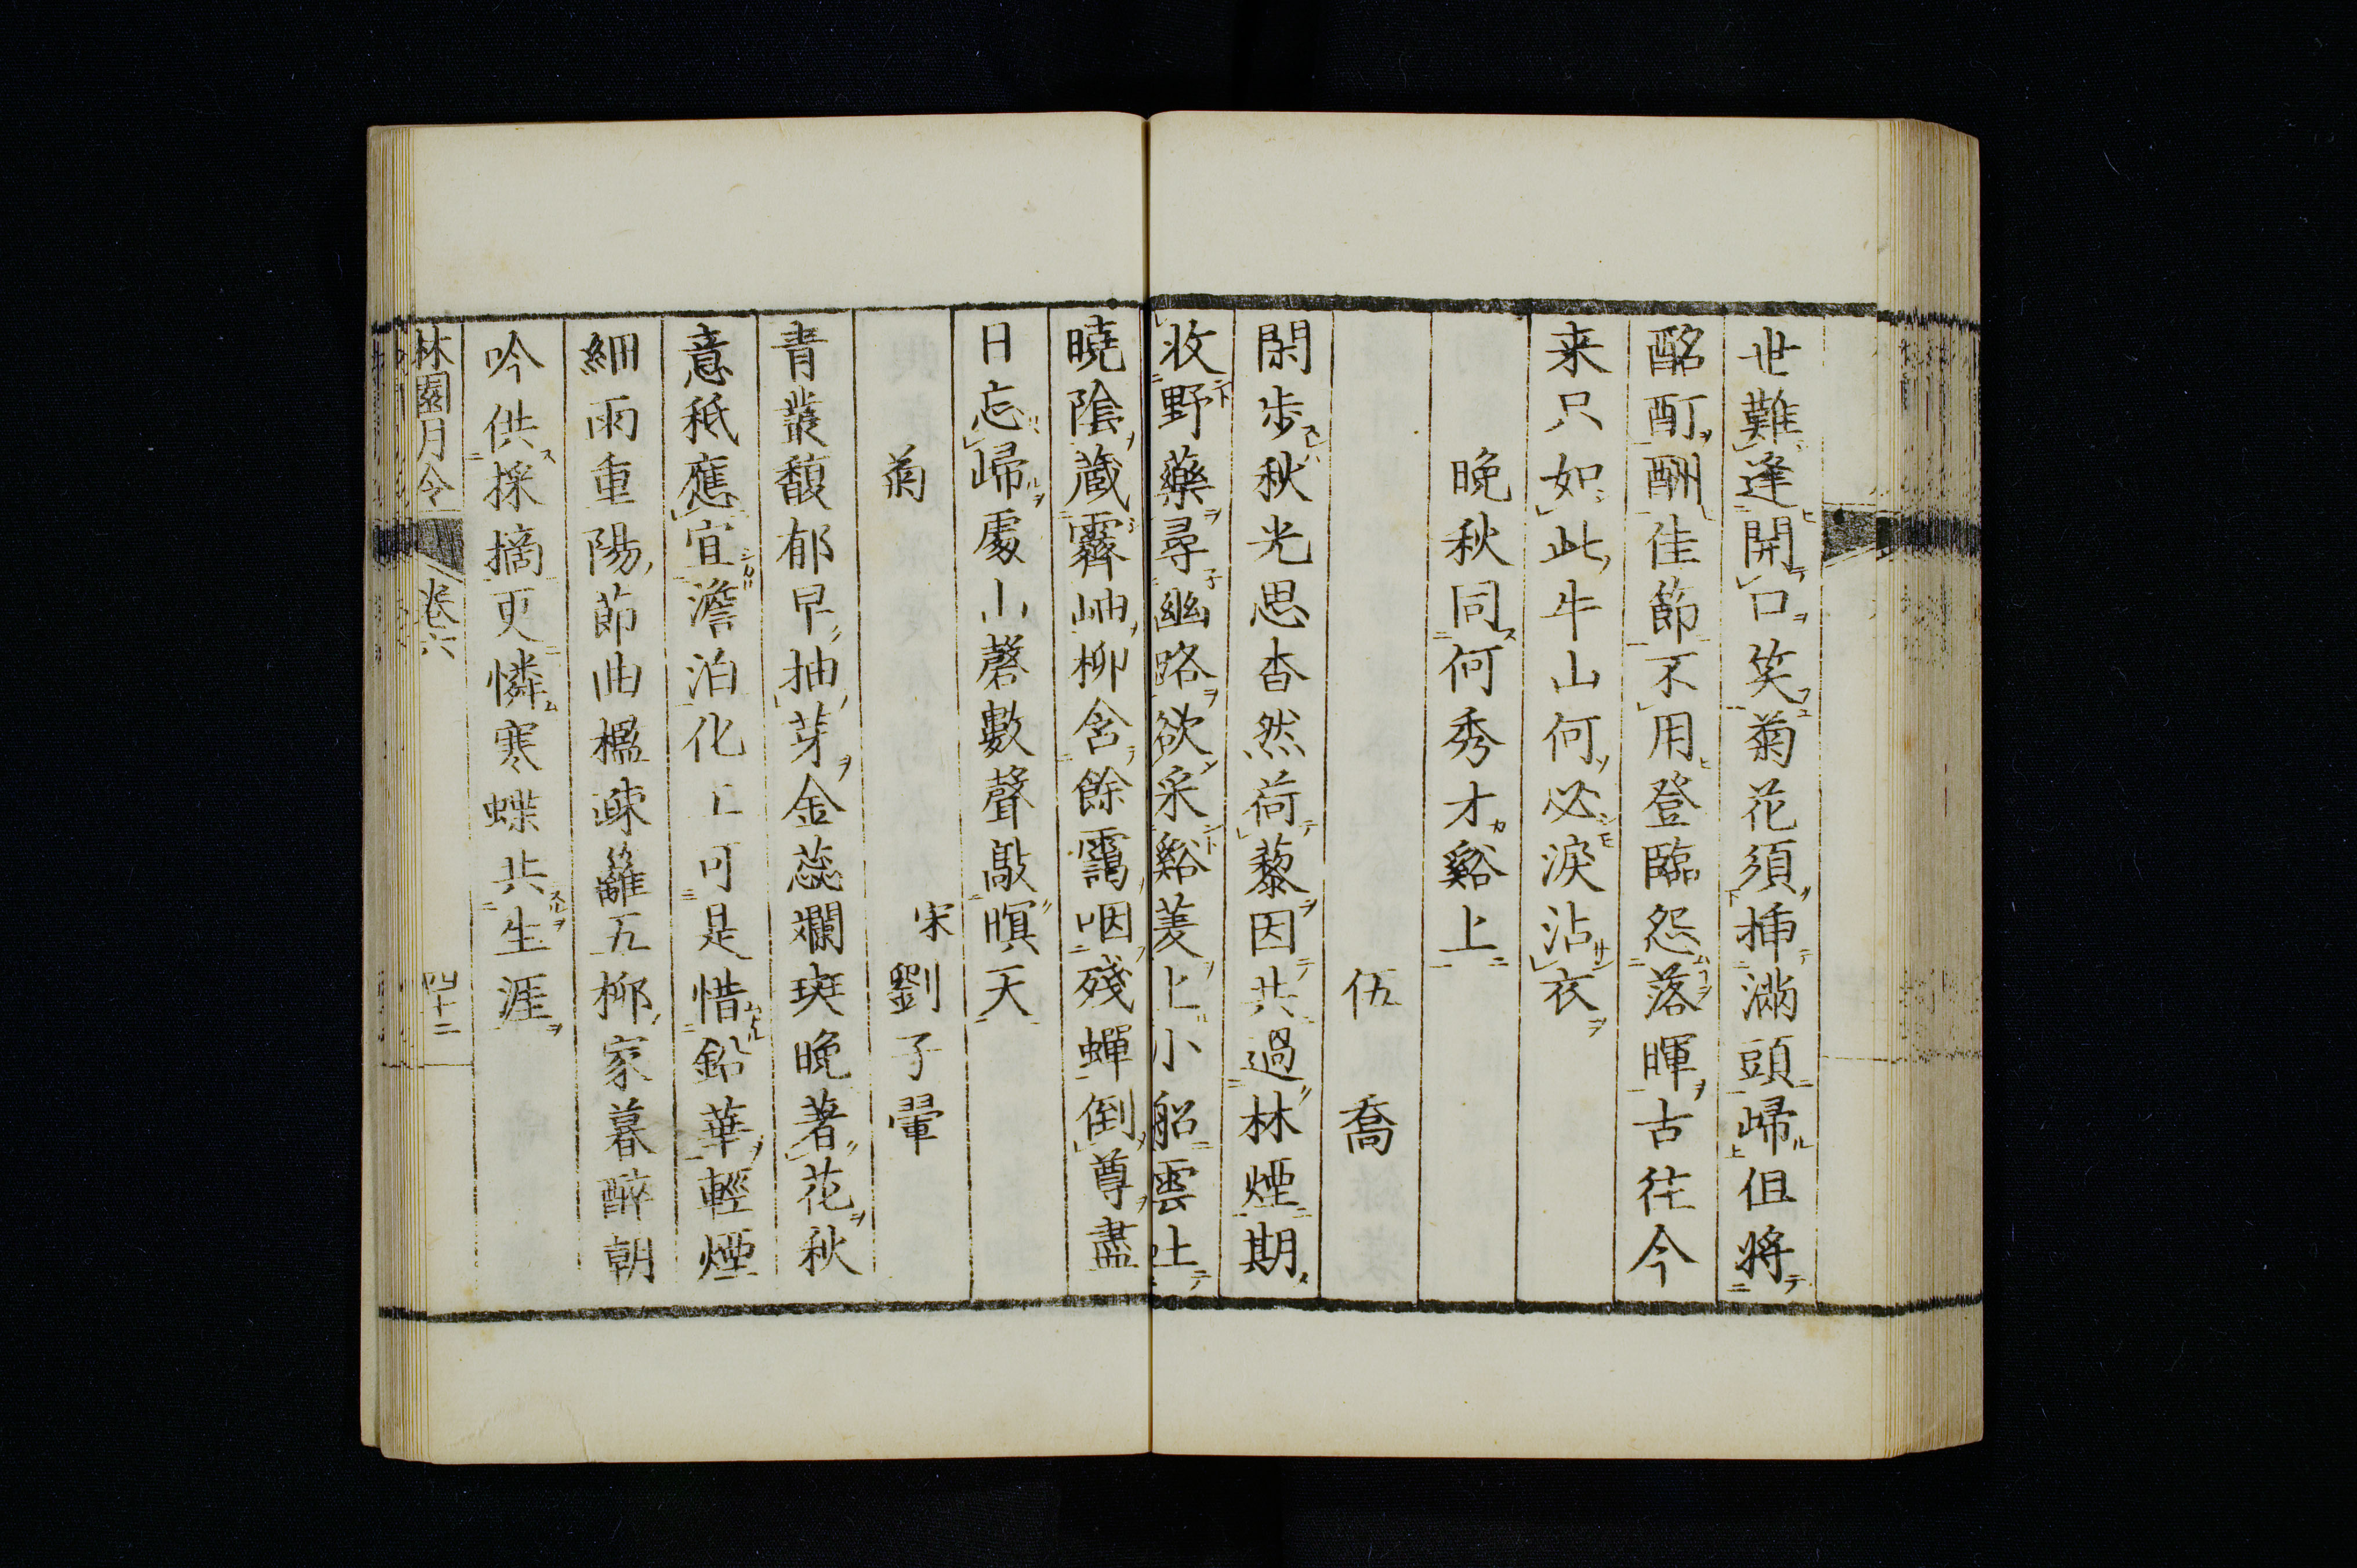 世難逢開口笑菊花須挿滿頭歸但將
酩酊酬佳節不用登臨怨落暉古往今
来只如此牛山何必淚沾衣
晚秋同何秀才谿上
伍喬
閑步秋光思杳然荷藜因共過林煙期
收野藥尋幽路欲采谿菱上小船雲止
曉陰藏霽岫柳含餘靄咽殘蟬倒尊盡
日忘歸處山磬數聲敲暝天
菊 宋劉子翬
青叢馥郁早抽芽金蕊斕斑晚著花秋
意秪應宜澹泊化工可是惜鉛華輕煙
細雨重陽節曲檻疎籬五柳家暮醉朝
吟供採摘更憐寒蝶共生涯
林園月令 卷六 四十二